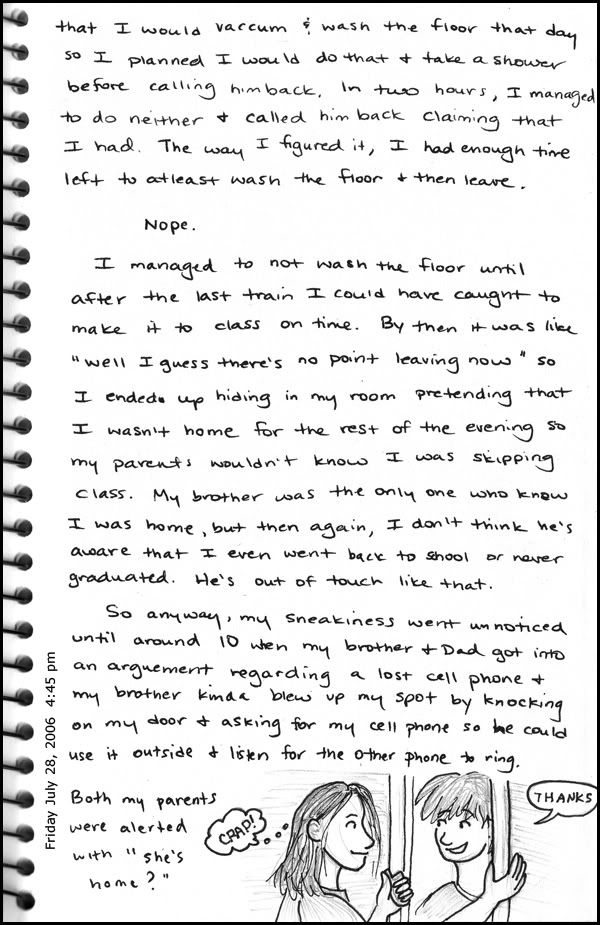 that I would vaccum & wash the floor that day
so I planned I would do that & take a shower
before calling him back. In two hours, I managed
to do neither & called him back claiming that
I had. The way I figured it, I had enough time
left to atleast wash the floor & then leave.
Nope.
I managed to not wash the floor until
after the last train I could have caught to
make it to class on time. By then it was like
"well I guess there's no point leaving now" so
I ended up hiding in my room pretending that
I wasn't home for the rest of the evening so
my parents wouldn't know I was skipping
class. My brother was the only one who knew
I was home, but then again, I don't think he's
aware that I even went back to shool or never
graduated. He's out of touch like that.
So anyway, my sneakiness went unnoticed
until around 10 wen my brother & Dad got into
an arguement regarding a lost cell phone &
my brother kinda blew up my spot by knocking
on my door & asking for my cell phone so he could
use it outside & listen for the other phone to ring.
Both my parents
were alerted
with "she's
home?"
CRAP!
THANKS
Friday July 28, 2006 4:45 pm